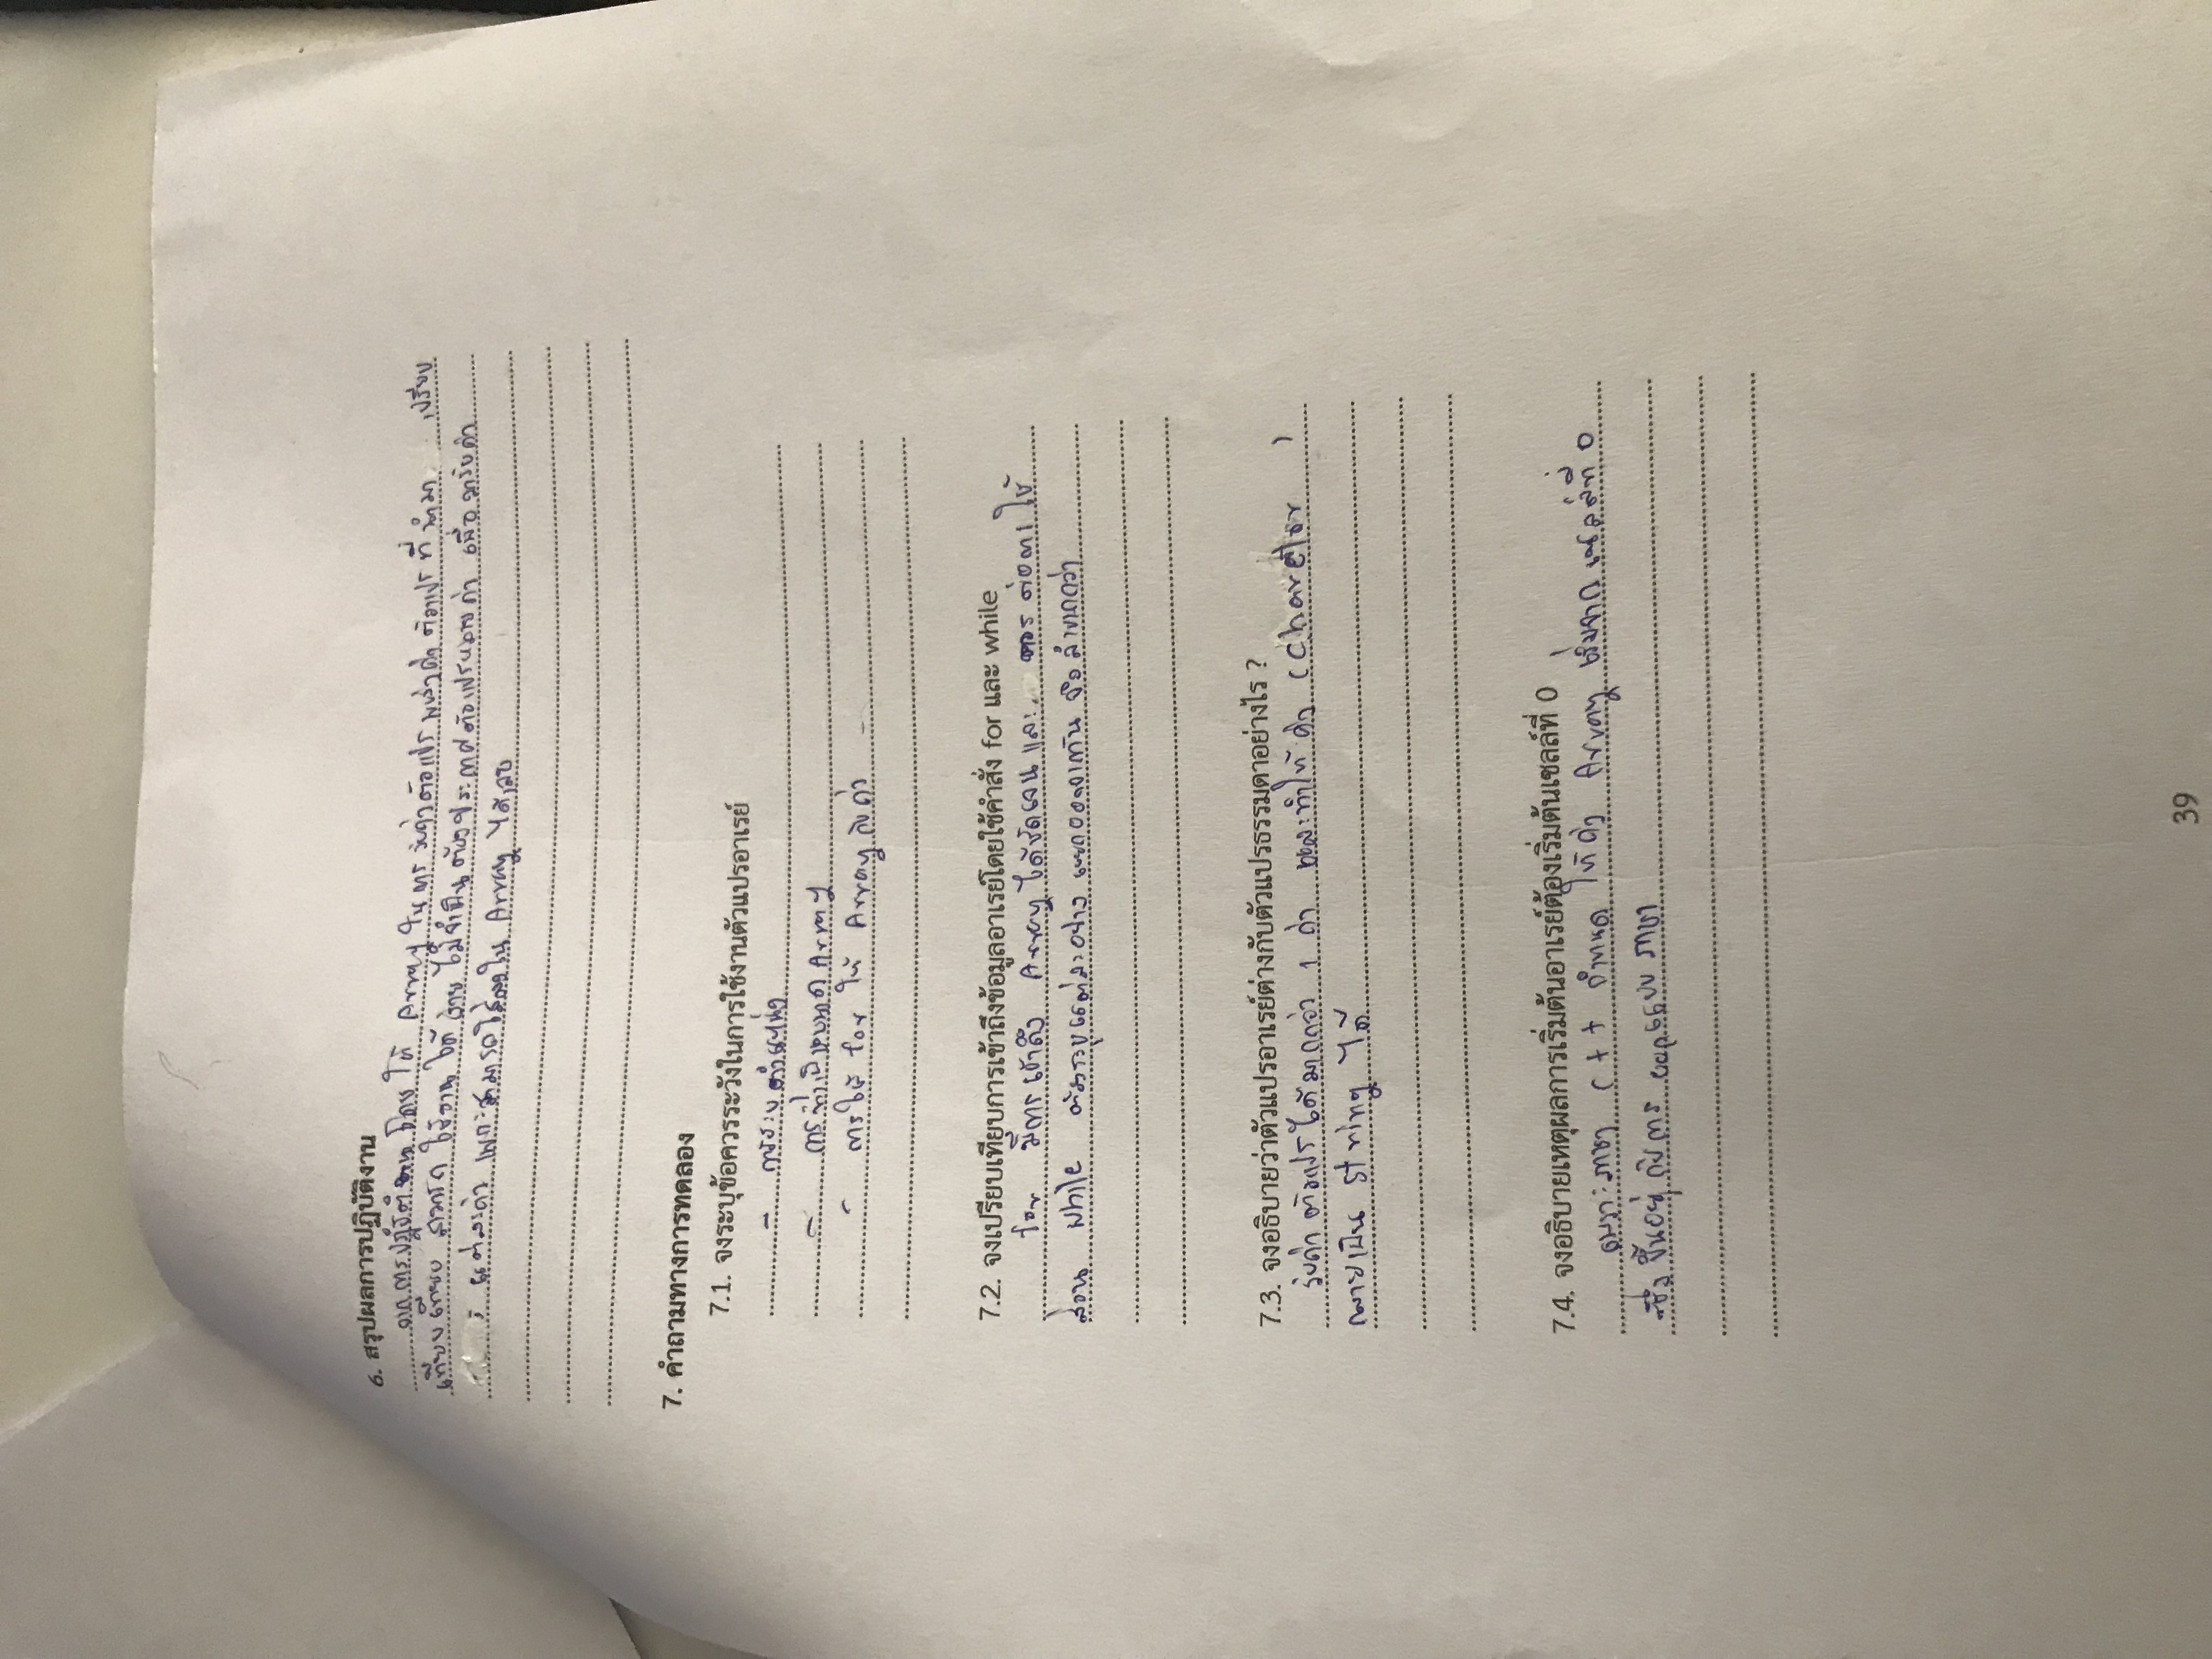 6. สรุปผลการปฏิบัติงาน
จากการปฏิบัติงาน โดยใช้ Array ในการ รับค่าตัวแปร แล้วค่า ตัวแปร ที่ นำมา เปรียบ
เทียบ เทียบ สามารถ ใช้งาน ได้ ง่าย ไม่จำเป็น ต้องประกาศตัวแปรหลายค่า เพื่อ มารับค่า
แต่ละค่า เพราะสามารถใส่ลงใน Array ได้เลย
7. คำถามทางการทดลอง
7.1. จงระบุข้อควรระวังในการใช้งานตัวแปรอาเรย์
- การระบุตำแหน่ง
- การ Array
- การใช้ for ให้ Array รับค่า
7.2. จงเปรียบเทียบการเข้าถึงข้อมูลอาเรย์โดยใช้คำสั่ง for และ while
for มีการเข้าถึง Array ได้ชัดเจน และ ควร ต่อการ ใช้
ส่วน while ต้องระบุแต่ละอย่าง แยกออกจากกัน จึง ลำบากกว่า
7.3. จงอธิบายว่าตัวแปรอาเรย์ต่างกับตัวแปรธรรมดาอย่างไร ?
รับค่า ตัวแปร ได้มากกว่า 1 ค่า และทำให้ ค่า (Charetor )
กลายเป็น string ได้
7.4. จงอธิบายเหตุผลการเริ่มต้นอาเรย์ต้องเริ่มต้นเซลล์ที่ 0
เพราะภาษา C++ กำหนด ให้ค่า Array เริ่มจาก เซลล์ที่ 0
ซึ่ง ขึ้นอยู่ กับการ ออกแบบ ภาษา
39